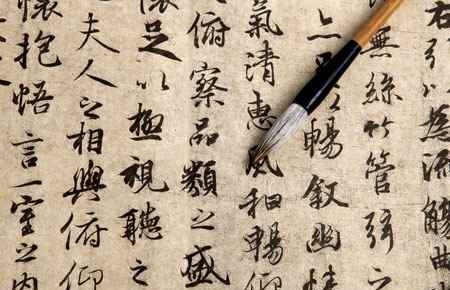 右引以為流觴曲
無絲竹管弦之
暢叙幽情
氣清惠風和暢仰
俯察品類之盛
懷足以極視聽之
夫人之相與俯仰
懷抱悟言一室之内